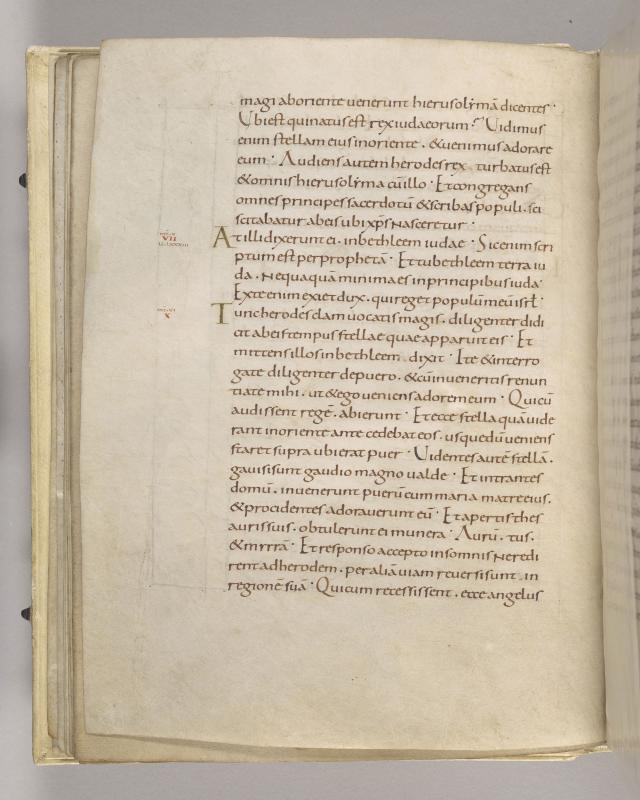 magi aboriente uenerunt hierusolỳmā dicentes ·
Ubi est qui natus est rex iudaeorum? Uidimus
enim stellam eius in oriente · & uenimus adorare
eum · Audiens autem herodes rex turbatus est
& omnis hierusolỳma cū illo · Et congregans
omnes principes sacerdotū & scribas populi · sci
scitabatur ab eis ubi xp̄s nasceretur ·
VII
At illi dixerunt ei · in bethleem iudae · Sic enim scri
ptum est per prophetā · Et tu bethleem terra iu
da · Nequaquā minima es in principibus iuda ·
Ex te enim exiet dux · qui reget populū meū isrł ·
X
Tunc herodes clam uocatis magis · diligenter didi
cit ab eis tempus stellae quae apparuit eis · Et
mittens illos in bethleem dixit · Ite & interro
gate diligenter de puero · & cū inueneritis renun
tiate mihi · ut & ego ueniens adorem eum · Qui cū
audissent regē · abierunt · Et ecce stella quā uide
rant in oriente antecedebat eos · usque dū ueniens
staret supra ubi erat puer · Uidentes autē stellā ·
gauisi sunt gaudio magno ualde · Et intrantes
domū · inuenerunt puerū cum maria matre eius ·
& procidentes adorauerunt eū · Et apertis thes
auris suis · obtulerunt ei munera · Aurū · tus ·
& mỳrrā · Et responso accepto in somnis ne redi
rent ad herodem · per aliā uiam reuersi sunt in
regionē suā · Qui cum recessissent · ecce angelus